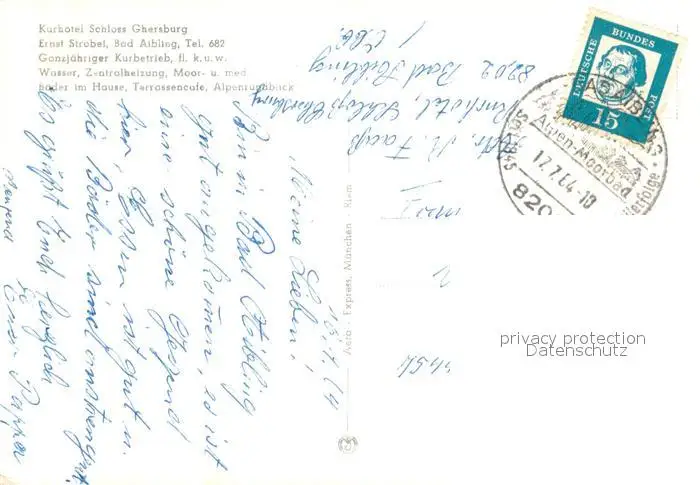 Kurhotel Schloss Ghersburg
Ernst Strobel, Bad Aibling, Tel. 682
Ganzjähriger Kurbetrieb, fl. k. u. w.
Wasser, Zentralheizung, Moor- u. med
Bäder im Hause, Terrassencafe, Alpenrundblick
16.7.64
Meine Lieben!
Bin in Bad Aibling
gut angekommen, es ist
eine schöne Gegend
hier, Essen ist gut u.
die Bäder sind anstrengend.
Es grüßt Euch herzlich
Euer Pappa
Aero - Express, München - Riem
Kurhotel, Schloß Ghersburg
8202 Bad Aibling
/ Obb.
DEUTSCHE BUNDES POST
15
BAD AIBLING
Alpen-Moorbad
17.7.64-18
820
privacy protection
Datenschutz